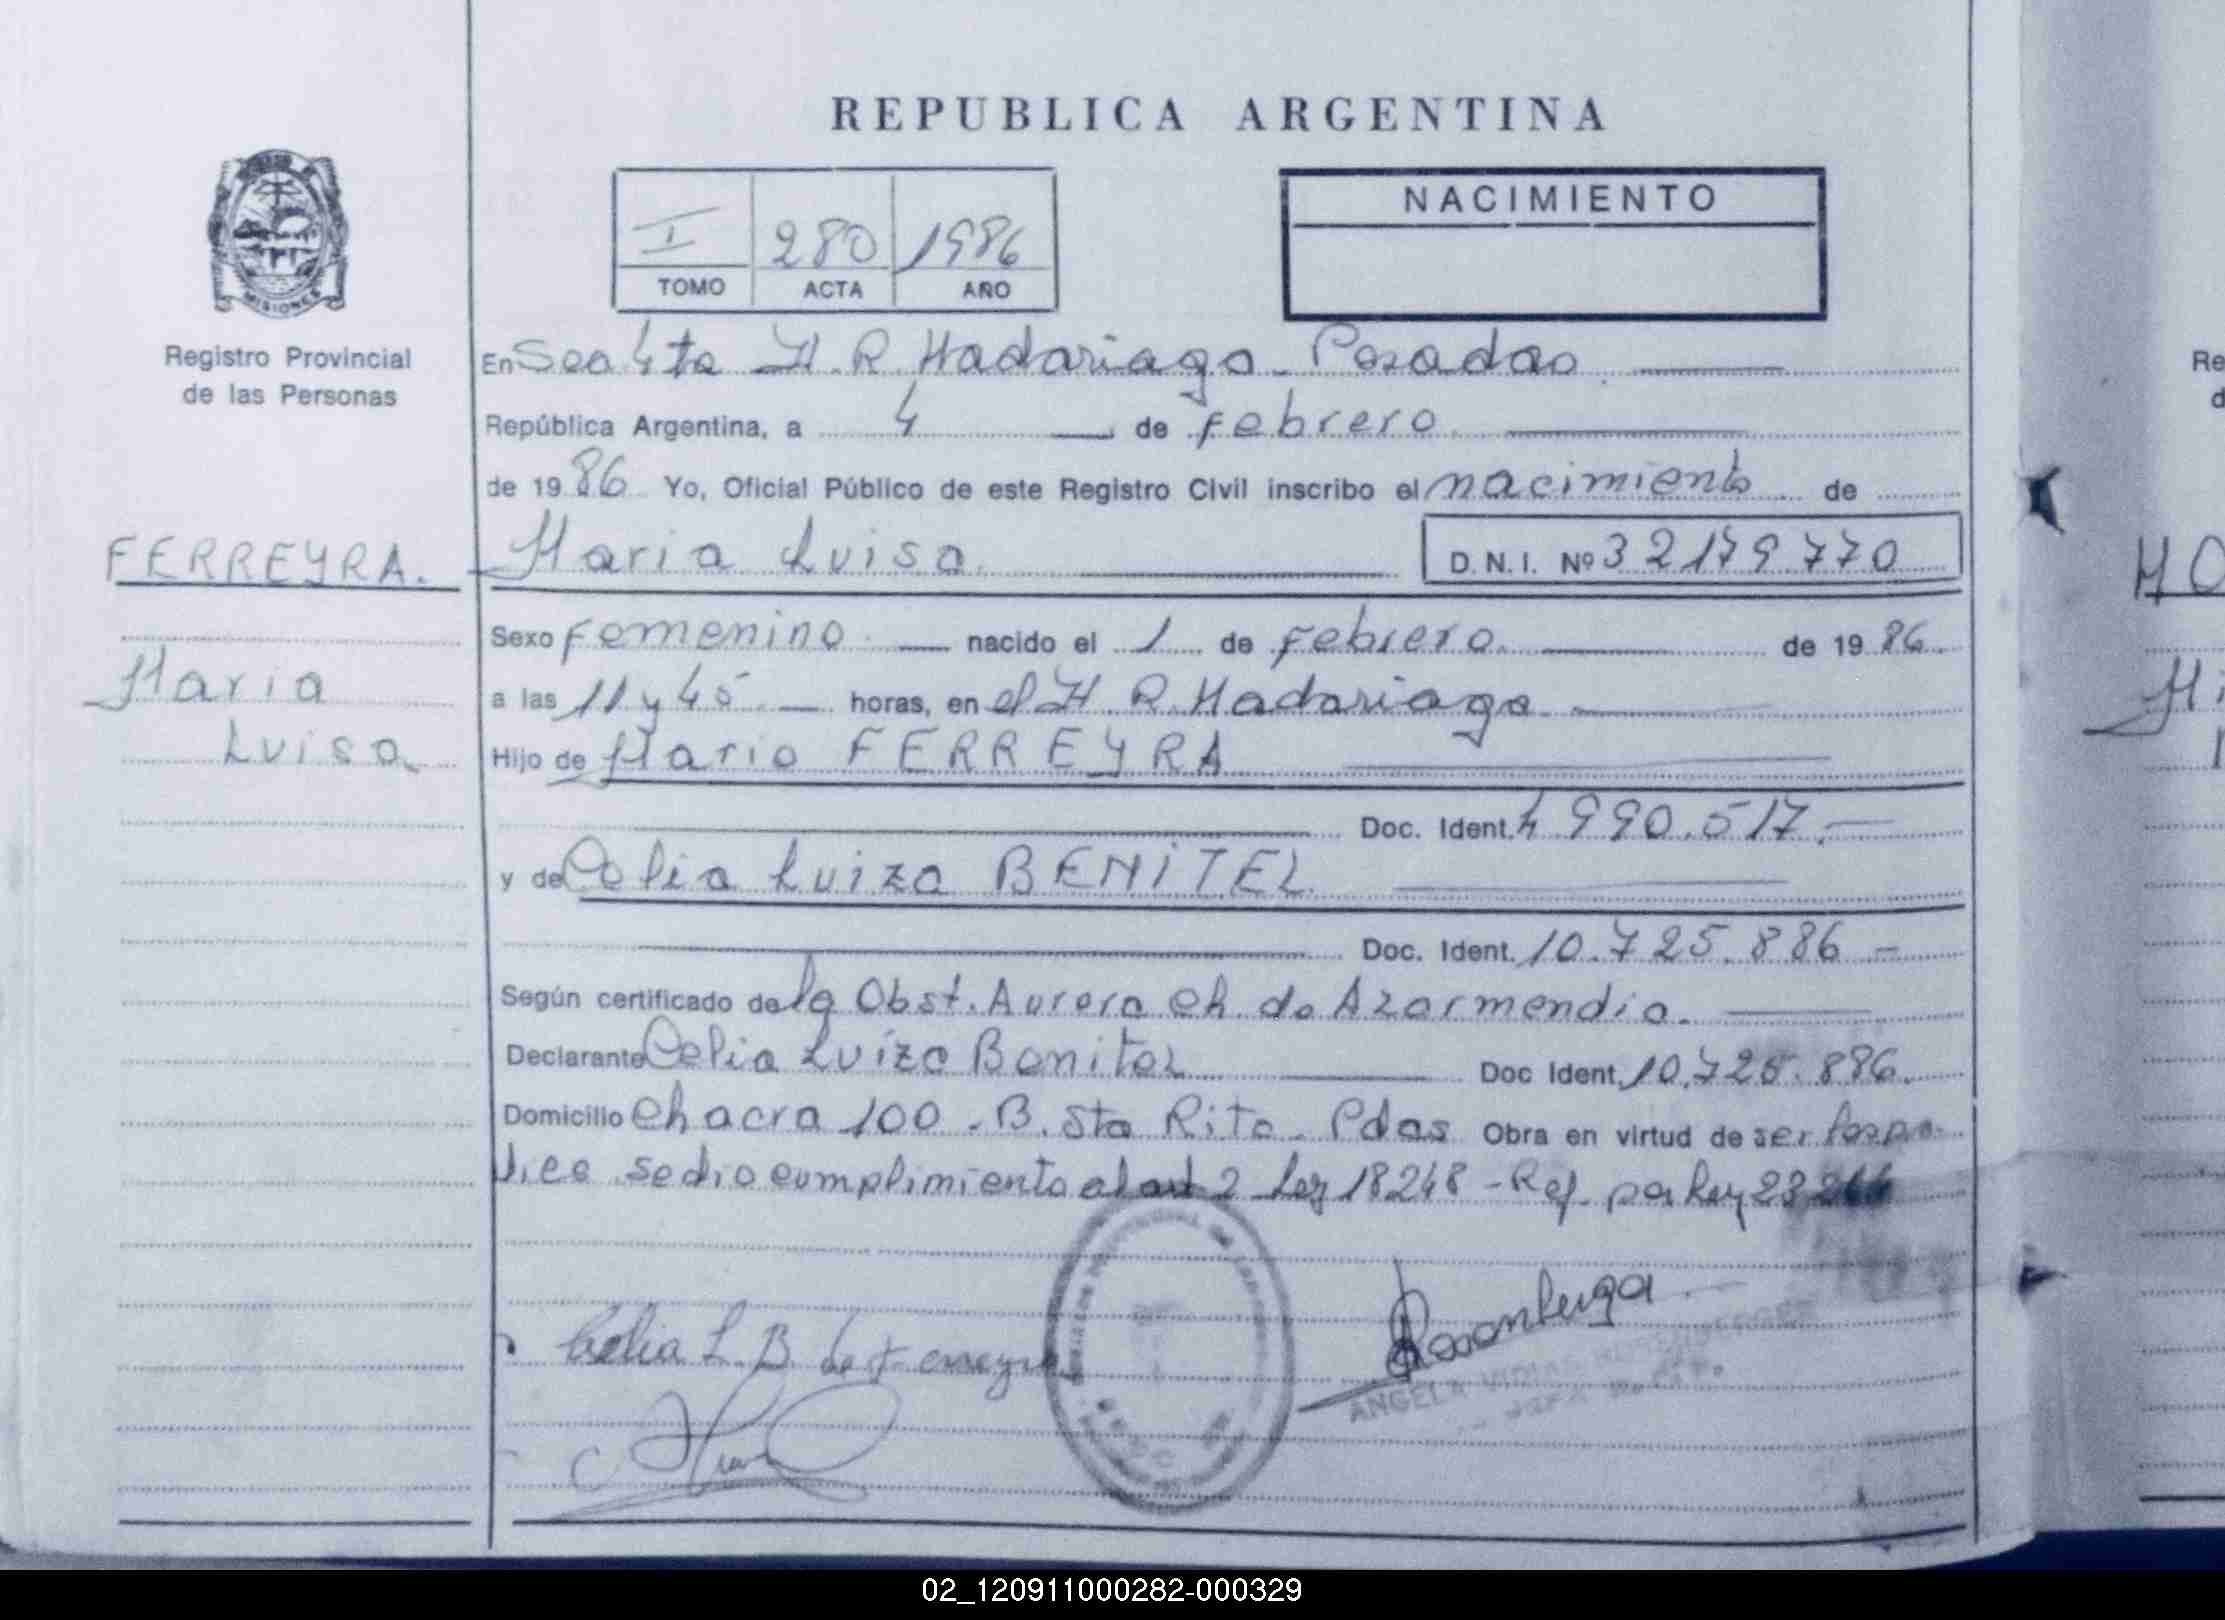 REPUBLICA ARGENTINA
MISIONES
Registro Provincial
de las Personas
I 280 1986
TOMO ACTA AÑO
NACIMIENTO
En Sec 4ta H. R. Madariaga - Posadas
República Argentina, a 4 de Febrero
de 1986 Yo, Oficial Público de este Registro Civil inscribo el nacimiento de
Maria Luisa D.N.I. Nº 32179770
FERREYRA.
Maria
Luisa
Sexo Femenino nacido el 1 de Febrero de 1986
a las 11 y 45 horas, en el H R Madariaga
Hijo de Mario FERREYRA
Doc. Ident. 4 990.517.-
y de Celia Luiza BENITEZ
Doc. Ident. 10.725.886 -
Según certificado de la Obst. Aurora Ch. de Azarmendia.
Declarante Celia Luiza Benitez Doc Ident. 10.725.886.
Domicilio Chacra 100 - B. Sta Rita - Pdas Obra en virtud de ser
se dio cumplimiento al art 2 Ley 18248 - Ref. por Ley
Celia L. B de Ferreyra
ANGELA
Re
d
02_120911000282-000329